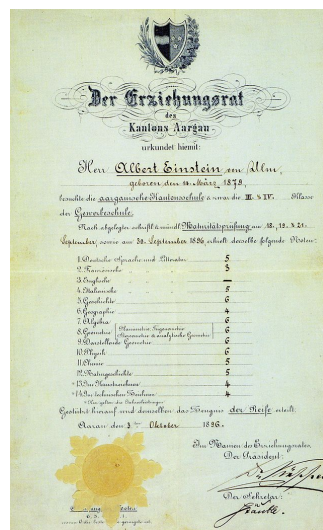 Der Erziehungsrat
des
Kantons Aargau
urkundet hiemit:
Herr Albert Einstein von Ulm,
geboren den 14. März 1879,
besuchte die aargauische Kantonsschule & zwar die III. & IV. Klasse
der Gewerbeschule.
Nach abgelegter schriftl. & mündl. Maturitätsprüfung am 18., 19. & 21.
September, sowie am 30. September 1896, erhielt derselbe folgende Noten:
1. Deutsche Sprache und Litteratur 5
2. Französische 3
3. Englische —
4. Italienische 5
5. Geschichte 6
6. Geographie 4
7. Algebra 6
8. Geometrie Planimetrie, Trigonometrie 6
Stereometrie & analytische Geometrie
9. Darstellende Geometrie 6
10. Physik 6
11. Chemie 5
12. Naturgeschichte 5
*13. Im Kunstzeichnen 4
*14. Im technischen Zeichnen 4
Gestützt hierauf wird demselben das Zeugnis der Reife erteilt.
Aarau den 3ten Oktober 1896.
Im Namen des Erziehungsrates,
Der Präsident:
Der Sekretär: